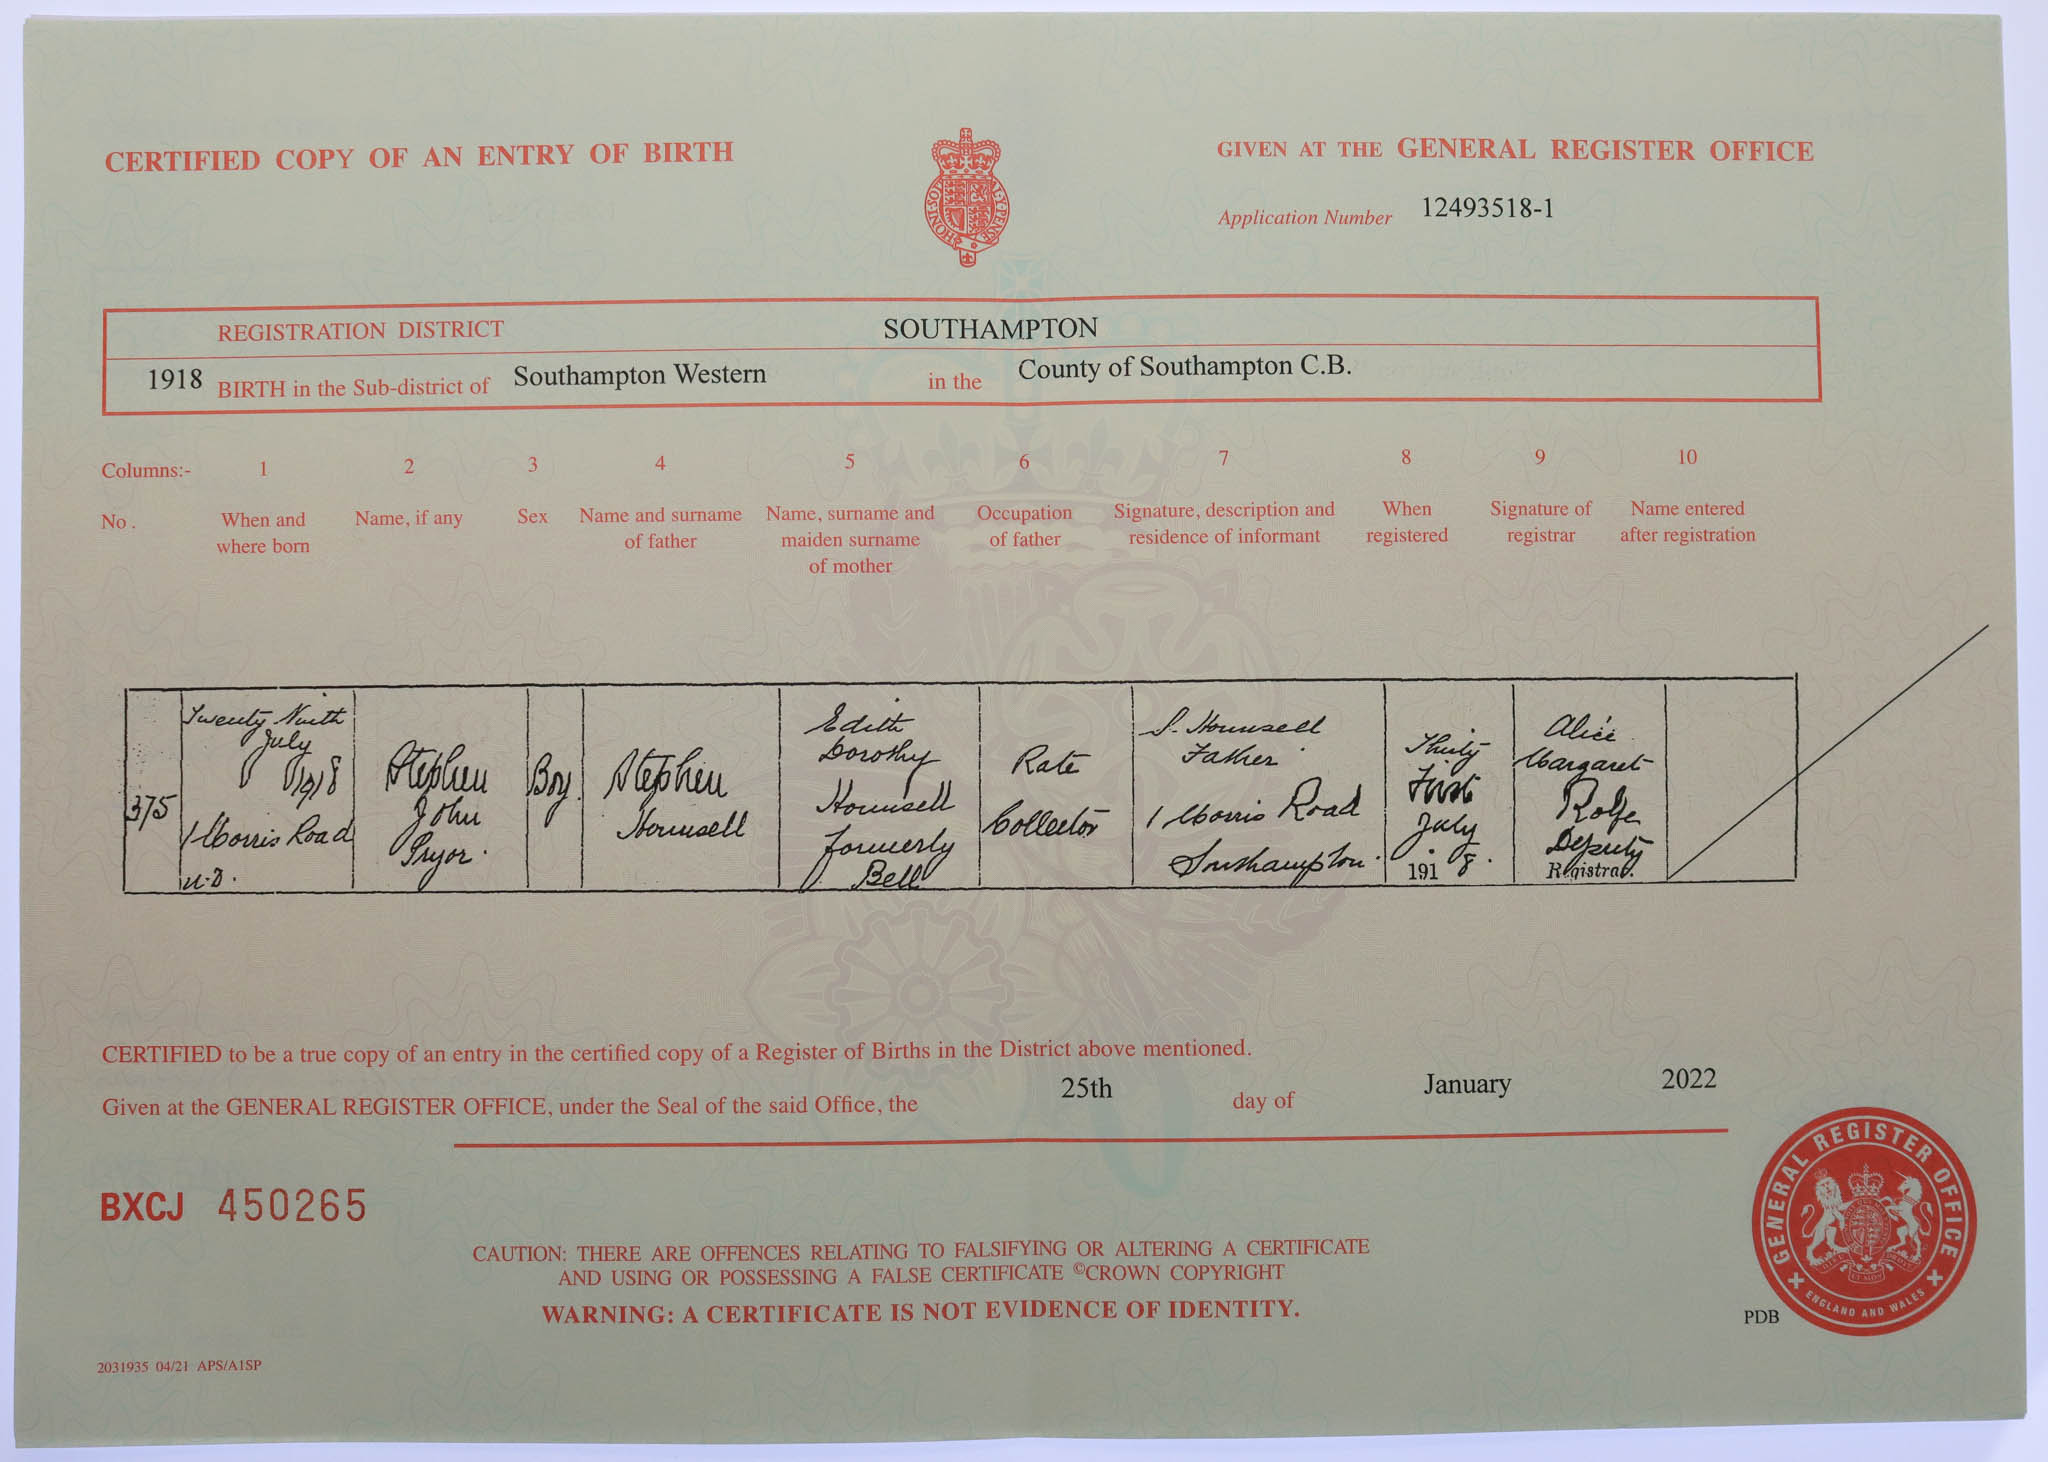 CERTIFIED COPY OF AN ENTRY OF BIRTH
GIVEN AT THE GENERAL REGISTER OFFICE
Application Number 12493518-1
REGISTRATION DISTRICT SOUTHAMPTON
1918 BIRTH in the Sub-district of Southampton Western in the County of Southampton C.B.
Columns:- 1 2 3 4 5 6 7 8 9 10
No. When and where born
Name, if any
Sex
Name and surname of father
Name, surname and maiden surname of mother
Occupation of father
Signature, description and residence of informant
When registered
Signature of registrar
Name entered after registration
375
Twenty Ninth
July
1918
1 Morris Road
U.D.
Stephen
John
Pryor.
Boy
Stephen
Hounsell
Edith
Dorothy
Hounsell
formerly
Bell
Rate
Collector
S. Hounsell
Father
1 Morris Road
Southampton.
Thirty
First
July
1918.
Alice
Margaret
Rolfe
Deputy
Registrar.
CERTIFIED to be a true copy of an entry in the certified copy of a Register of Births in the District above mentioned.
Given at the GENERAL REGISTER OFFICE, under the Seal of the said Office, the 25th day of January 2022
BXCJ 450265
CAUTION: THERE ARE OFFENCES RELATING TO FALSIFYING OR ALTERING A CERTIFICATE
AND USING OR POSSESSING A FALSE CERTIFICATE ©CROWN COPYRIGHT
WARNING: A CERTIFICATE IS NOT EVIDENCE OF IDENTITY.
GENERAL REGISTER OFFICE
ENGLAND AND WALES
PDB
2031935 04/21 APS/A1SP